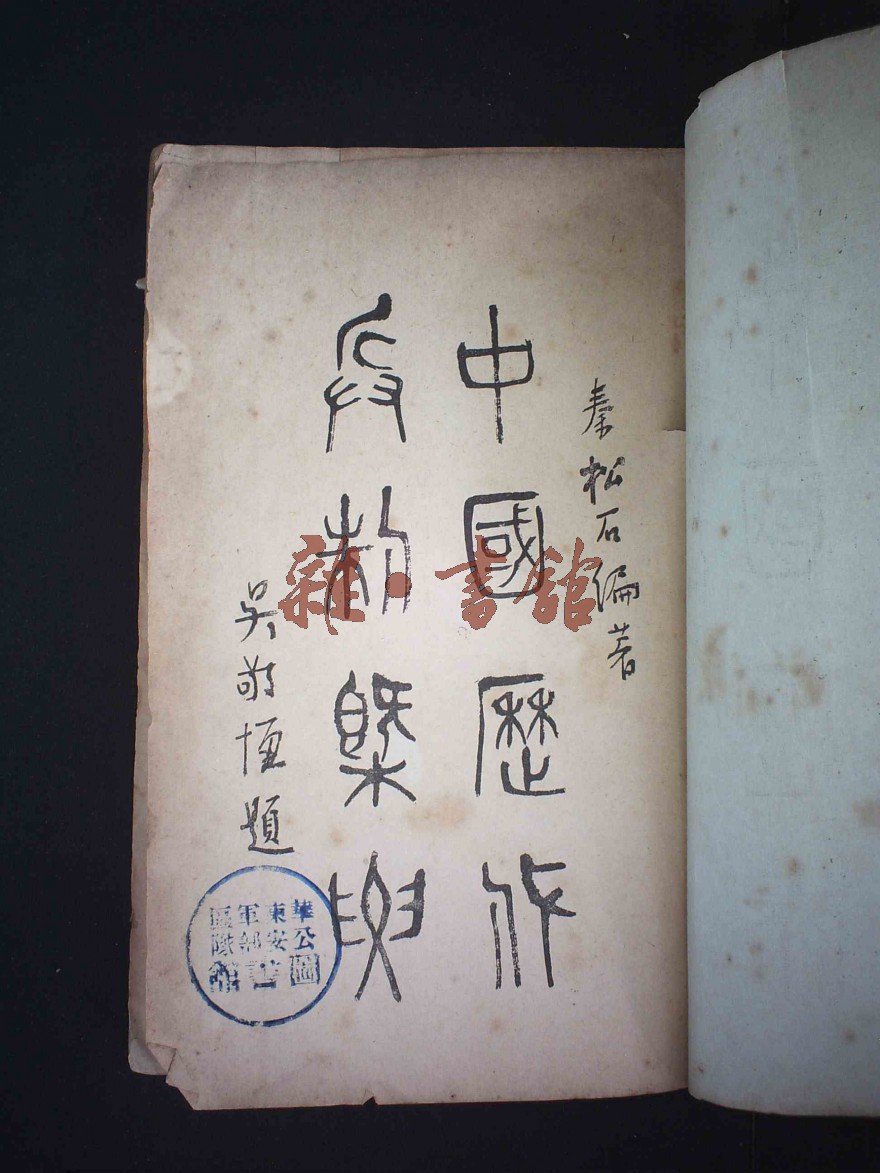 秦松石編著
中國歷代
兵制槩要
吳敬恒題
華東軍區
公安部隊
圖書館
雜·書館